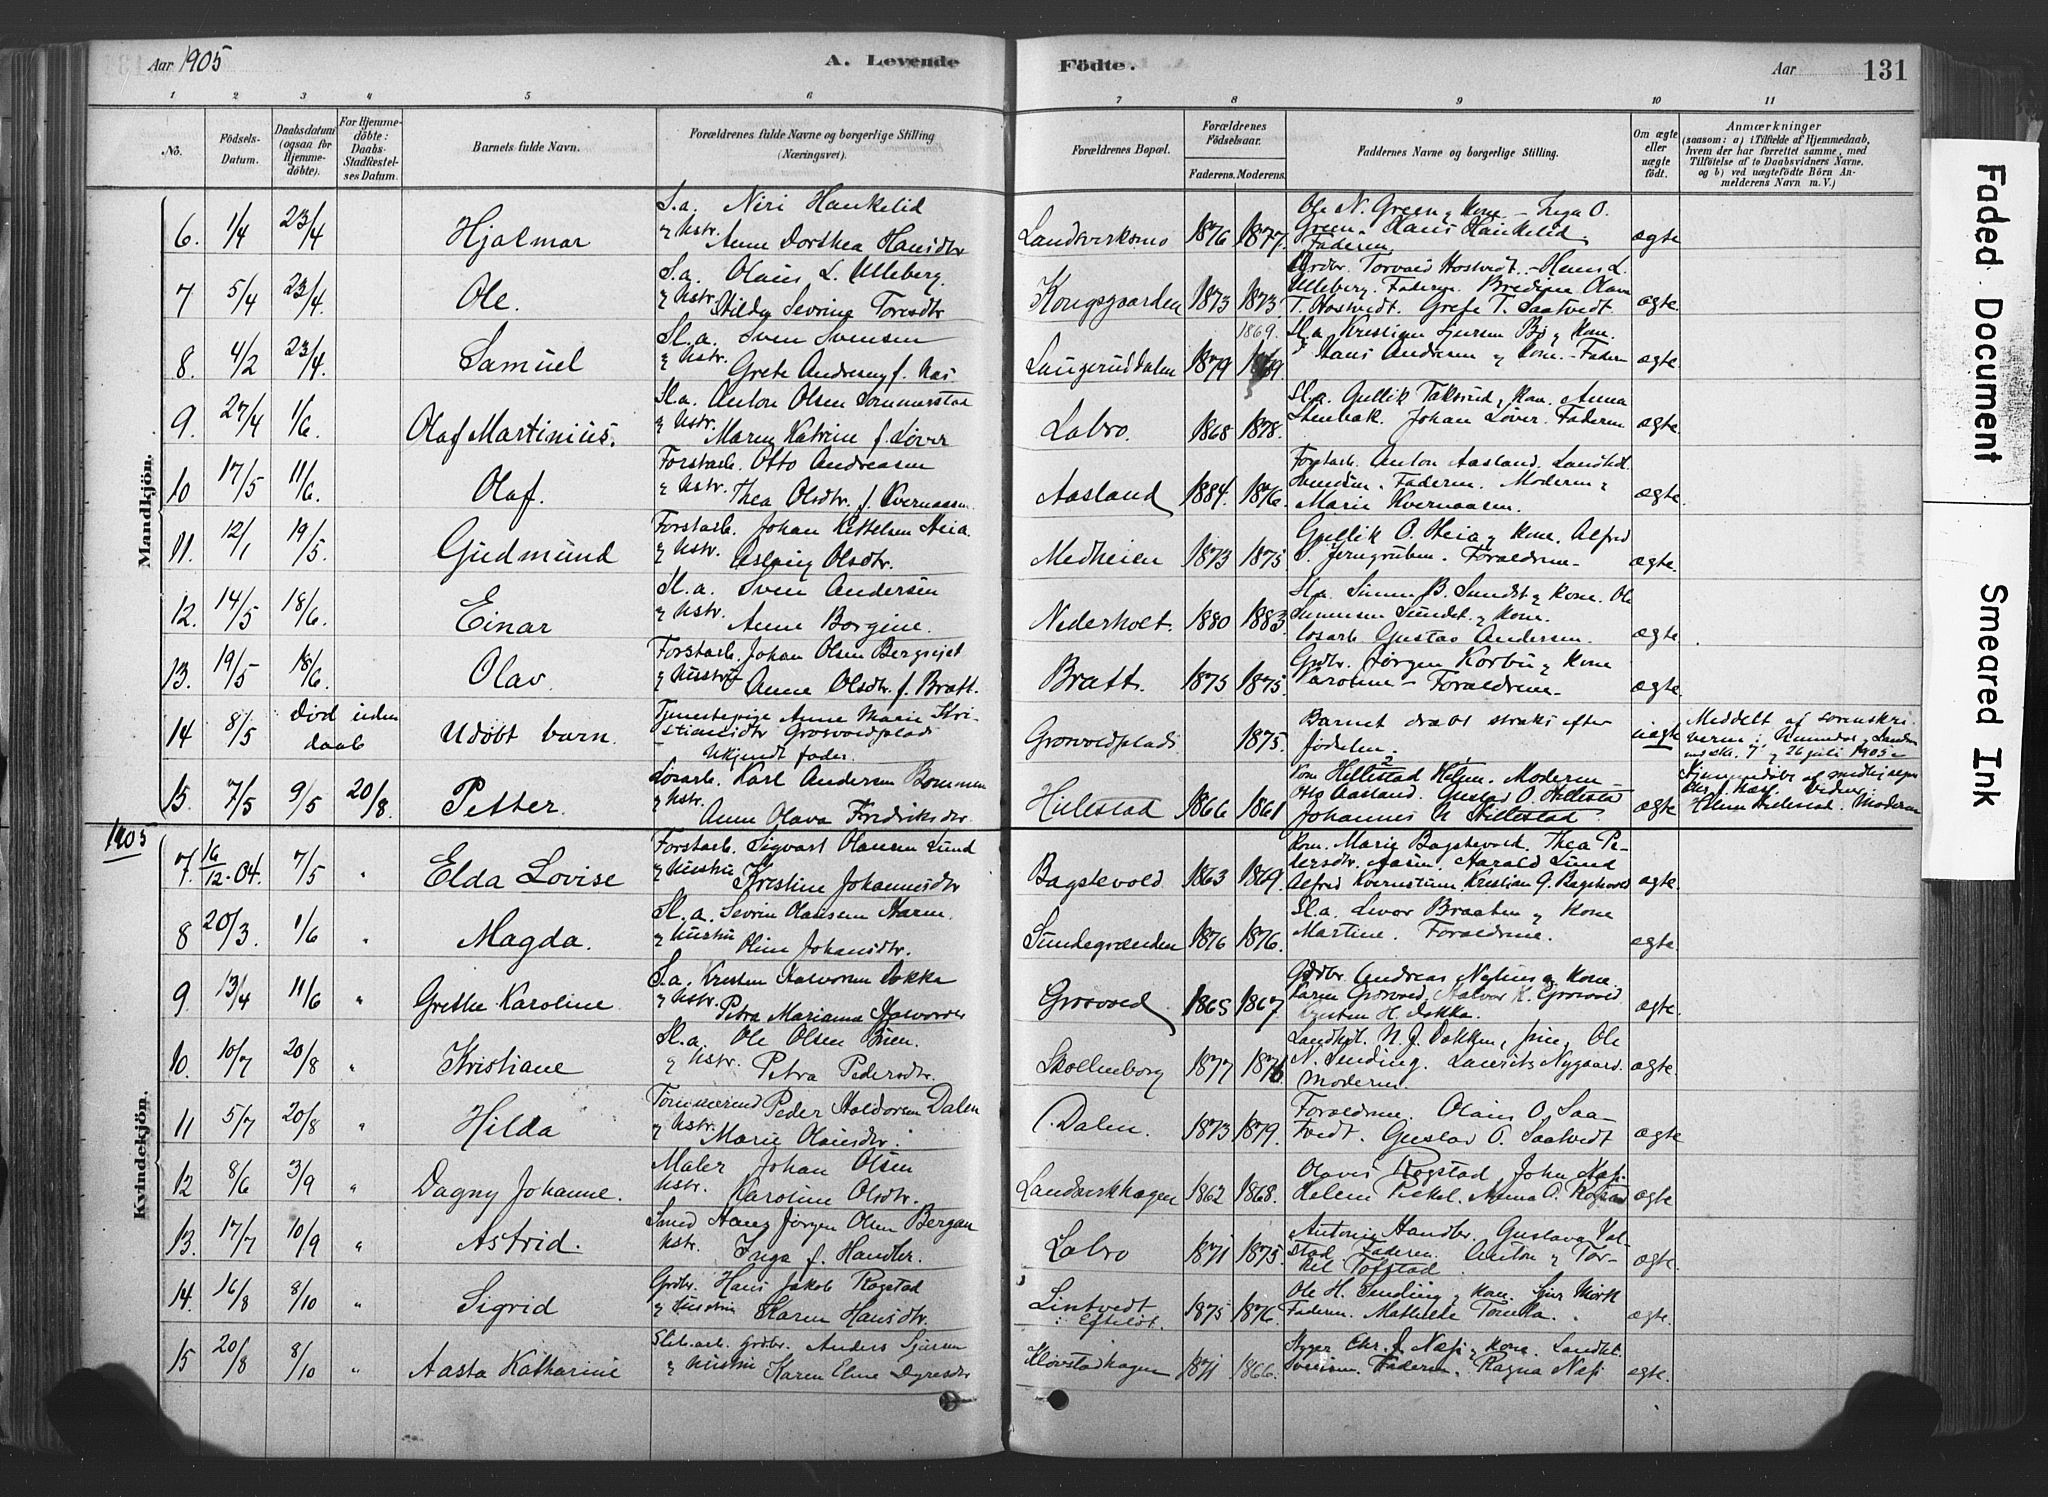 Aar 1905
A. Levende
Fødte.
Aar
131
1 2 3 4 5 6 7 8 9 10 11
No.
Födsels-Datum.
Daabsdatum (ogsaa for Hjemme-döbte).
For Hjemme-döbte: Daabs-Stadfæstel-ses Datum.
Barnets fulde Navn.
Forældrenes fulde Navne og borgerlige Stilling (Næringsvei).
Forældrenes Bopæl.
Forældrenes Födselsaar.
Faderens. Moderens.
Faddernes Navne og borgerlige Stilling.
Om ægte eller uægte födt.
Anmærkninger
(saasom: a) i Tilfælde af Hjemmedaab, hvem der har forrettet samme, med Tilföielse af to Daabsvidners Navne, og b) ved uægtefödte Börn An-melderens Navn m. V.)
Mandkjön.
6. 1/4 23/4 Hjalmar
S.a. Niri Haukelid
& Hstr. Anne Dorthea Hansdtr
Landsverksmo 1876 1877
Ole N. Green & Kone - Inga O.
Green. Hans Haukelid.
Faderen
ægte
7 5/4 23/4 Ole
S.a. Olaus L. Ulleberg
& Hstr. Hilda Sevrine Toresdtr
Kongsgaarden 1873 1873
Grdbr. Torvald Hostvedt. - Hans L.
Ulleberg. Faderen. Bredine Olava
T. Hostvedt. Grete T. Saatvedt
ægte
8. 4/2 23/4. Samuel
Sl.a. Sven Svensen
& Hstr. Grete Andersen f. Næs
Laugeruddalen 1879 1869.
Hans Andersen & Kone. - Faderen
ægte
9. 27/4 1/6. Olaf Martinius.
Sl.a. Anton Olsen Sommerstad
& Hstr. Maren Katrine f. Løver
Labro. 1868 1878.
Sl.a. Gullik Taksrud, Kone. Anna
Stenbak. Johan Løver. Faderen
ægte
10 17/5 11/6. Olaf.
Forstarb. Otto Andreasen
& Hstr. Thea Olsdtr. f. Kvernaasen
Aasland 1884. 1876.
Forstarb. Anton Aasland. Landhdl.
Svendsen. Faderen. Moderen &
Marie Kvernaasen.
ægte
11. 12/1 19/5. Gudmund
Forstarb. Johan Kittelsen Heia
& Hstr. Aslaug Olsdtr.
Medheien 1873 1875
Gullik O. Heia & Kone. Alfred
S. Jerngruben. Forældrene
ægte.
12. 14/5 18/6. Einar
Sl.a. Sven Andersen
& Hstr. Anne Borgine.
Nederholt. 1880 1883.
Sl.a. Simen B. Sundet & Kone. Ole
Simensen Sundet & Kone.
Løsarb Gustav Andersen.
ægte
13. 19/5 18/6. Olav
Forstarb. Johan Olsen
& Hustru Anne Olsdtr. f. Bratt.
Bratt. 1875 1875.
Grdbr. Jørgen Korbu & Kone
Karoline - Forældrene
ægte
14 8/5 død uden daab Udøbt barn.
Tjenestepige Anne Marie Kri-
stiansdtr Grosvoldplads
Ukjendt fader.
Grosvoldplads 1875.
Barnet dræbt straks efter
fødselen.
uægte
Meddelt af sorenskri-
veren i
7 & 26 juli 1905
15. 7/5 9/5 20/8 Petter.
Løsarb. Karl Andersen Bommen
& Hstr. Anne Olava Fredriksdtr
Hillestad 1866 1861
Kone Hillestad Helene. Moderen
Otto Aasland. Gustav O. Hillestad
Johannes N Hillestad
ægte
Helene Hillestad. Moderen
1905
Kvindekjön.
7. 16/12-04. 7/5 " Elda Lovise
Forstarb. Sigvart Olausen Lund
& Hustru Kristine Johannesdtr
Bagstevold 1863 1869.
Kone Marie Bagstevold. Thea Pe-
dersdtr. Harald Lund
Alfred Kvernstuen. Kristian G. Bagstevold
ægte
8 20/3. 1/6 " Magda.
Sl.a. Sevrin Olausen
& Hustru Oline Johansdtr.
Sundegrænden 1876 1876.
Sl.a. Levor Braaten & Kone
Martine. Forældrene.
ægte
9 13/4 11/6 " Grethe Karoline
S.a. Kristen Halvorsen Dokka
& Hstr. Petra Mariane Halvorsdtr
Grosvold 1865 1867
Grdbr Andreas & Kone.
Karen Grosvold. Halvor K. Grosvold
Kristen H. Dokka.
ægte.
10. 10/7 20/8 " Kristiane
Sl.a. Ole Olsen
& Hstr. Petra Pedersdtr.
Skollenborg 1877 1876
Landhdl. N. J. Dokken, Ole
N. Sending. Laurits Nygaard.
Moderen
ægte
11 5/7 20/8 " Hilda
Tømmermd Peder Haldorsen Dalen
& Hstr. Marie Olausdtr.
Dalen. 1873 1879.
Forældrene. Olaus O. Saa-
tvedt. Gustav O. Saatvedt
ægte
12 8/6 3/9 " Dagny Johanne.
Maler Johan Olsen
Hstr. Karoline Olsdtr.
Landsverkhagen 1862 1868.
Olavis Rogstad John Næsi
Helene Pickel. Anna O. Rogstad
ægte
13. 17/7 10/9 " Astrid.
Smed Hans Jørgen Olsen Bergan
Hstr. Inga f. Handler.
Labro 1871 1875
Antonie Handler. Gustava Tof-
stad Faderen. Anton & Tor-
kel Tofstad
ægte.
14. 16/8 8/10 " Sigrid
Grdbr. Hans Jakob Rogstad
& Hustru Karen Hansdtr.
Lintvedt
i Efteløt. 1875 1876.
Ole H. Sending & Kone. Sjur Mork
Faderen. Mathilde Tomba.
ægte
15 20/8 8/10 " Aasta Katharine
Slibarb. Grdbr. Anders Sjursen
& Hustru Karen Eline Dyresdtr
Klovstadhagen 1871 1866.
Bygger Chr. J. Næsi & Kone. Landhdl.
Svensen. Faderen. Ragna Næsi
ægte.
Faded Document
Smeared Ink